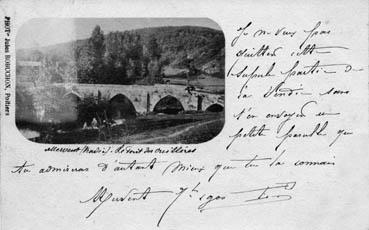 PHOT- Jules ROBUCHON, Poitiers
Mervent (Vendée) - Le Pont des
Je ne veux pas
quitter cette
superbe partie de
la Vendée sans
t'en envoyer un
petit paraphe que
tu admireras d'autant mieux que tu la connais
Mervent 7bre 1900